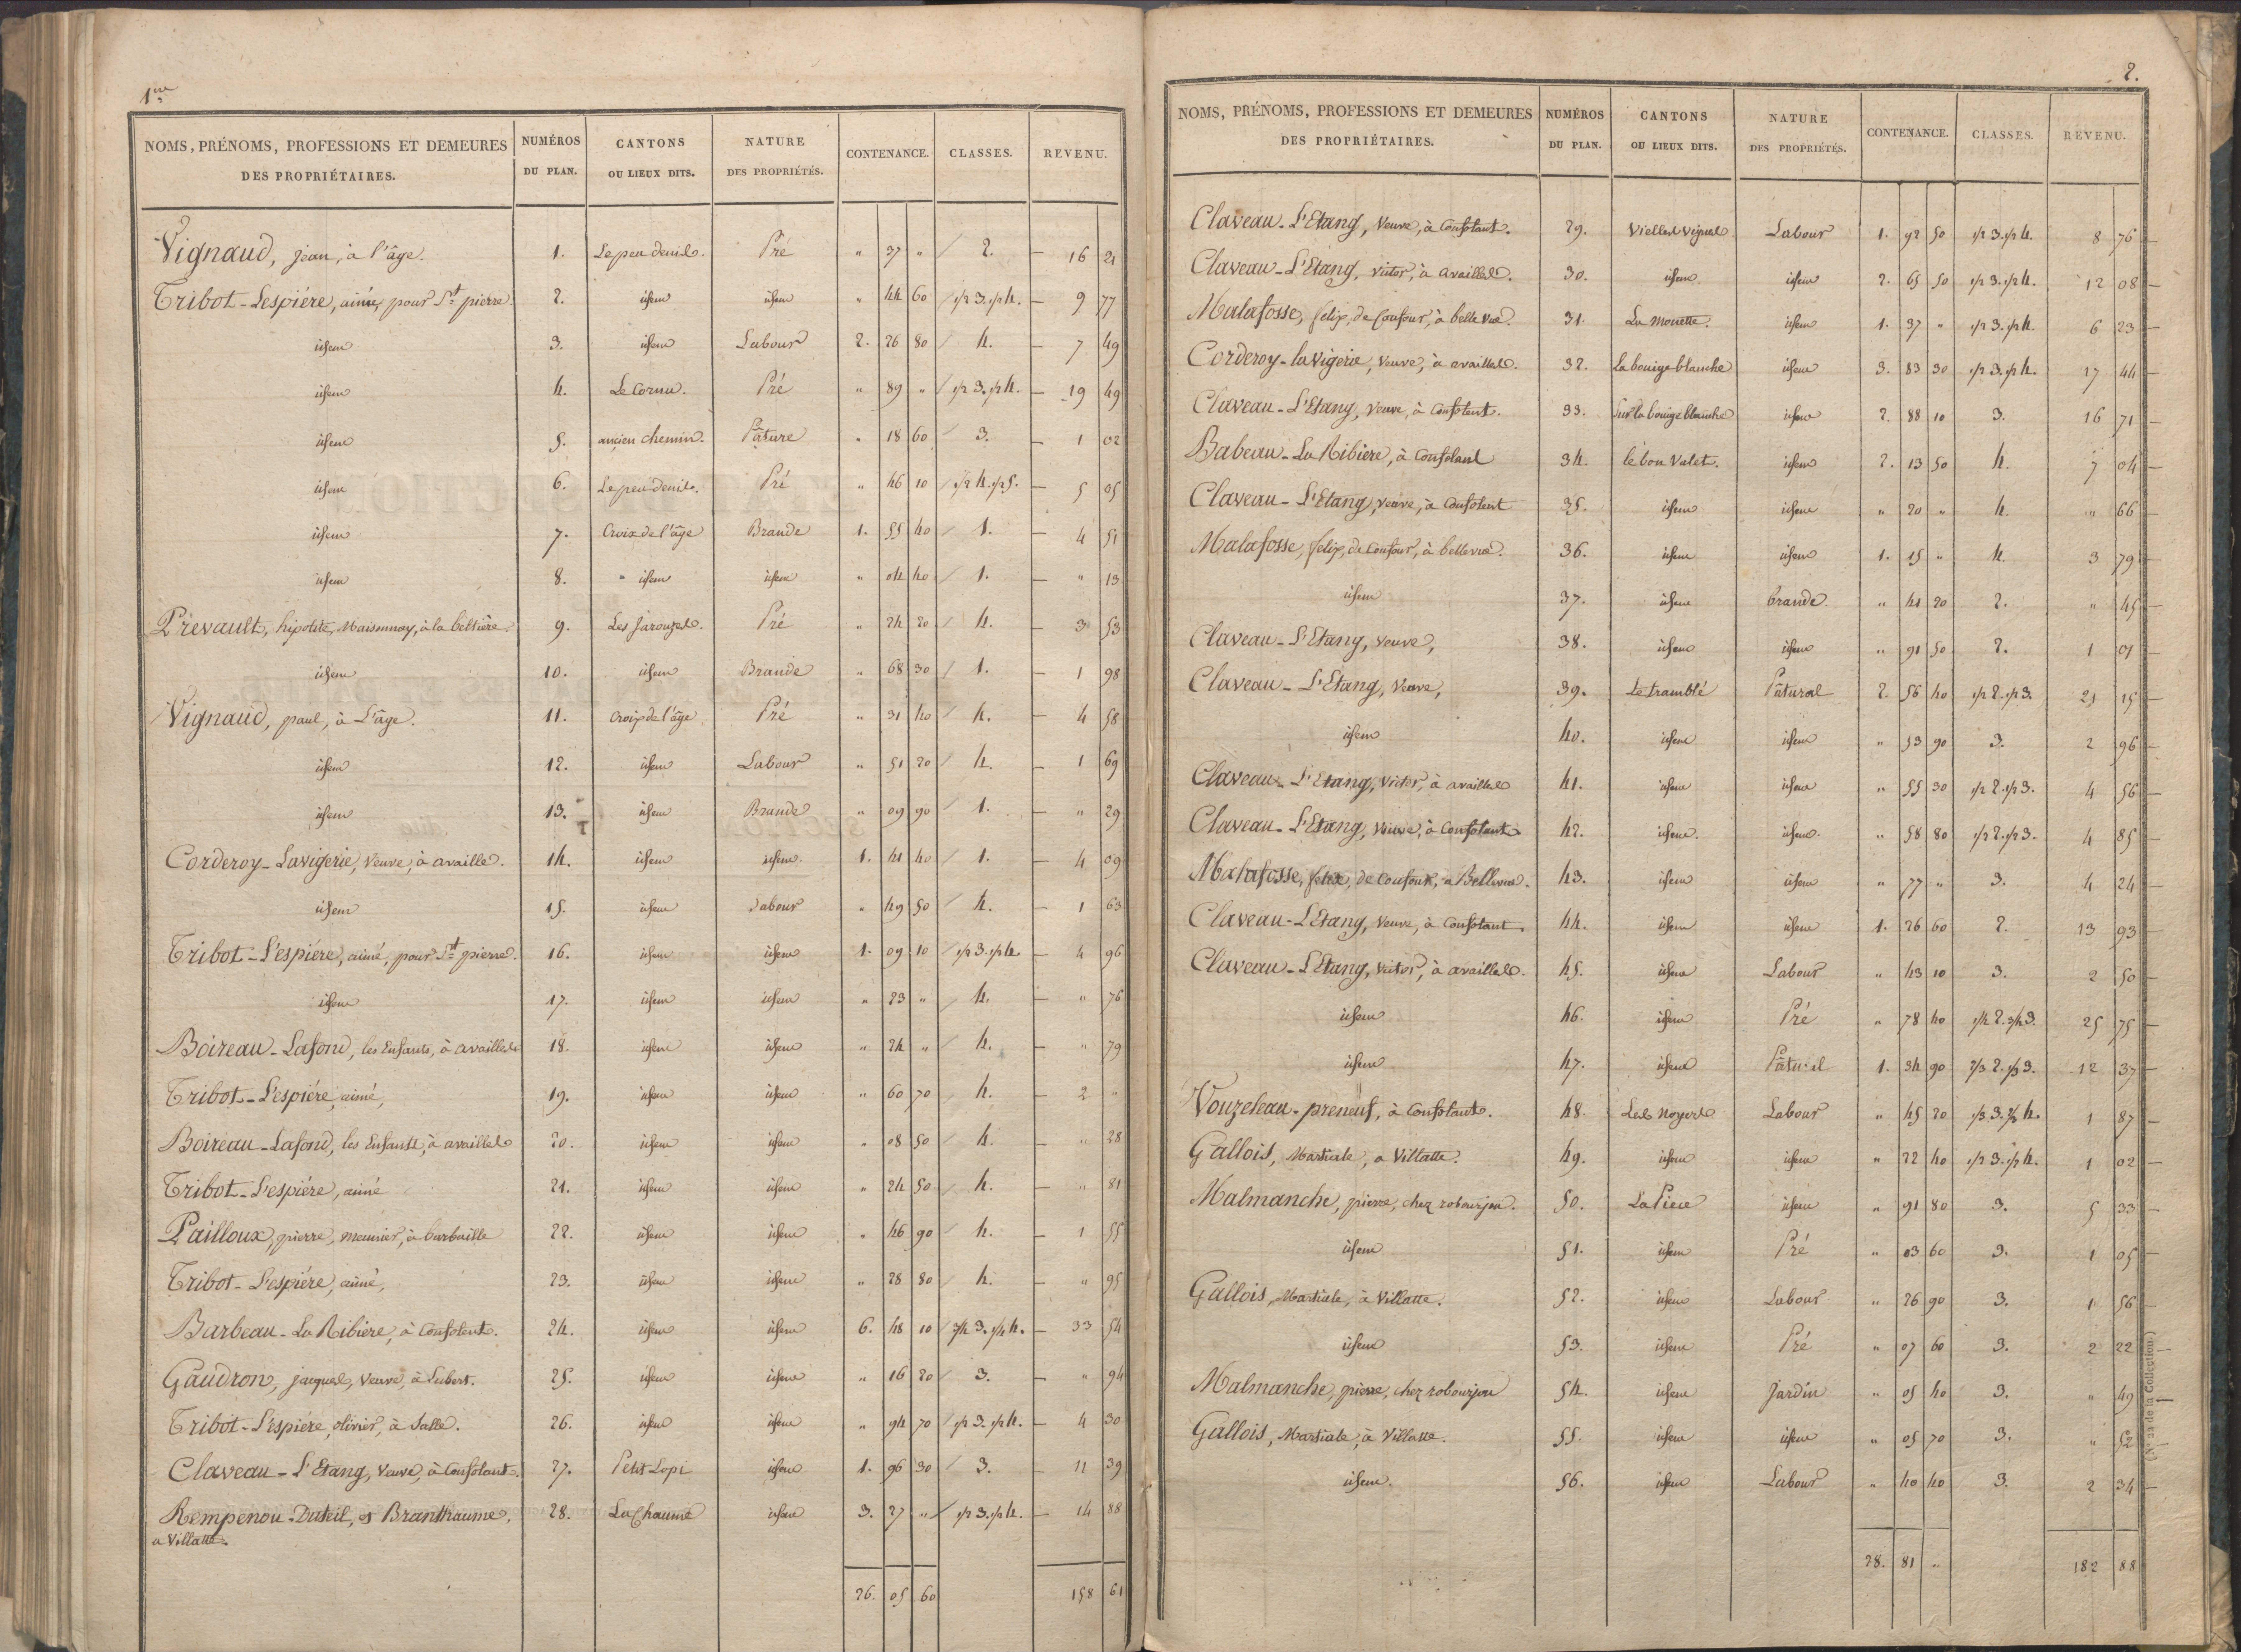 1re
NOMS, PRÉNOMS, PROFESSIONS ET DEMEURES DES PROPRIÉTAIRES. | NUMÉROS DU PLAN. | CANTONS OU LIEUX DITS. | NATURE DES PROPRIÉTÉS. | CONTENANCE. | CLASSES. | REVENU.
Vignaud, jean, à l'âge. 1. Le peu denile. Pré " 37 " 2. 16 21
Tribot-Lespiére, aimé, pour St pierre 2. idem idem " 44 60 1/2 3. 1/2 4. 9 77
idem 3. idem Labour 2. 26 80 4. 7 49
idem 4. Le Cornu. Pré " 89 " 1/2 3. 1/2 4. 19 49
idem 5. ancien chemin. Pâture " 18 60 3. 1 02
idem 6. Le peu denile. Pré " 46 10 1/2 4. 1/2 5. 5 05
idem 7. Croix de l'âge Brande 1. 55 40 1. 4 51
idem 8. idem idem " 04 40 1. " 13
Prevault, hipolite, Maisonnay, à la beltière. 9. Les Jarouzes. Pré " 24 20 4. 3 53
idem 10. idem Brande " 68 30 1. 1 98
Vignaud, paul, à L'âge. 11. croix de l'âge Pré " 31 40 4. 4 58
idem 12. idem Labour " 51 20 4. 1 69
idem 13. idem Brande " 09 90 1. " 29
Corderoy-Lavigerie, Veuve, à availle. 14. idem idem 1. 41 40 1. 4 09
idem 15. idem Labour " 49 50 4. 1 63
Tribot-L'espiére, aimé, pour St pierre. 16. idem idem 1. 09 10 1/2 3. 1/2 4. 4 96
idem 17. idem idem " 23 " 4. " 76
Boireau-Lafond, les Enfants, à availles 18. idem idem " 24 " 4. " 79
Tribot-L'espiére, aimé, 19. idem idem " 60 70 4. 2 "
Boireau-Lafond, les Enfants, à availles 20. idem idem " 08 50 4. " 28
Tribot-L'espiére, aimé 21. idem idem " 24 50 4. " 81
Pailloux, pierre, meunier, à barbaille 22. idem idem " 46 90 4. 1 55
Tribot-L'espiére, aimé, 23. idem idem " 28 80 4. " 95
Barbeau-La Ribière, à Confolent. 24. idem idem 6. 48 10 3/4 3. 1/4 4. 33 54
Gaudron, jacques, Veuve, à Lubert. 25. idem idem " 16 20 3. " 94
Tribot-L'espiére, olivier, à Salle. 26. idem idem " 94 70 1/2 3. 1/2 4. 4 30
Claveau-L'Etang, Veuve, à Confolant. 27. Petit Lopi idem 1. 96 30 3. 11 39
Rempenou-Duteil, et Branthaume, 28. La Chaume idem 3. 27 " 1/2 3. 1/2 4. 14 88
a Villatte.
26. 05 60 158 61
2.
NOMS, PRÉNOMS, PROFESSIONS ET DEMEURES DES PROPRIÉTAIRES. | NUMÉROS DU PLAN. | CANTONS OU LIEUX DITS. | NATURE DES PROPRIÉTÉS. | CONTENANCE. | CLASSES. | REVENU.
Claveau-L'Etang, Veuve, à Confolant. 29. Vielles Vignes. Labour 1. 92 50 1/2 3. 1/2 4. 8 76
Claveau-L'Etang, Victor, à availles. 30. idem idem 2. 65 50 1/2 3. 1/2 4. 12 08
Malafosse, felix, de Confour, à belle Vue. 31. La Mouette. idem 1. 37 " 1/2 3. 1/2 4. 6 23
Corderoy-la Vigerie, Veuve, à availles. 32. La bouige blanche idem 3. 83 30 1/2 3. 1/2 4. 17 44
Claveau-L'Etang, Veuve, à Confolent. 33. Sur la bouige blanche idem 2. 88 10 3. 16 71
Babeau-La Ribière, à Confolant 34. le bon Valet. idem 2. 13 50 4. 7 04
Claveau-L'Etang, Veuve, à Confolent 35. idem idem " 20 " 4. " 66
Malafosse, felix, de Confour, à bellevue. 36. idem idem 1. 15 " 4. 3 79
idem 37. idem brande. " 41 20 2. " 45
Claveau-L'Etang, Veuve, 38. idem idem " 91 50 2. 1 01
Claveau-L'Etang, Veuve, 39. Le tramblé Pâtural 2. 56 40 1/2 2. 1/2 3. 21 15
idem 40. idem idem " 53 90 3. 2 96
Claveau-L'Etang, Victor, à availles 41. idem idem " 55 30 1/2 2. 1/2 3. 4 56
Claveau-L'Etang, Veuve, à Confolant 42. idem. idem. " 58 80 1/2 2. 1/2 3. 4 85
Malafosse, felix, de Confour, a Bellevue. 43. idem idem " 77 " 3. 4 24
Claveau-L'Etang, Veuve, à Confolant. 44. idem idem 1. 26 60 2. 13 93
Claveau-L'Etang, Victor, à availles. 45. idem Labour " 43 10 3. 2 50
idem 46. idem Pré " 78 40 1/4 2. 3/4 3. 25 75
idem 47. idem Pâtural 1. 34 90 2/3 2. 1/3 3. 12 37
Vouzeleau-preneuf, à Confolant. 48. Les Noyers Labour " 45 20 1/3 3. 2/3 4. 1 87
Gallois, Martiale, a Villatte. 49. idem idem " 22 40 1/2 3. 1/2 4. 1 02
Malmanche, pierre, chez robourjou. 50. La Piece idem " 91 80 3. 5 33
idem 51. idem Pré " 03 60 3. 1 05
Gallois, Martiale, à Villatte. 52. idem Labour " 26 90 3. 1 56
idem 53. idem Pré " 07 60 3. 2 22
Malmanche, pierre, chez robourjou 54. idem Jardin " 05 40 3. " 49
Gallois, Martiale, à Villatte. 55. idem idem " 05 70 3. " 52
idem. 56. idem Labour " 40 40 3. 2 34
28. 81 " 182 88
(N° 22 de la Collection)